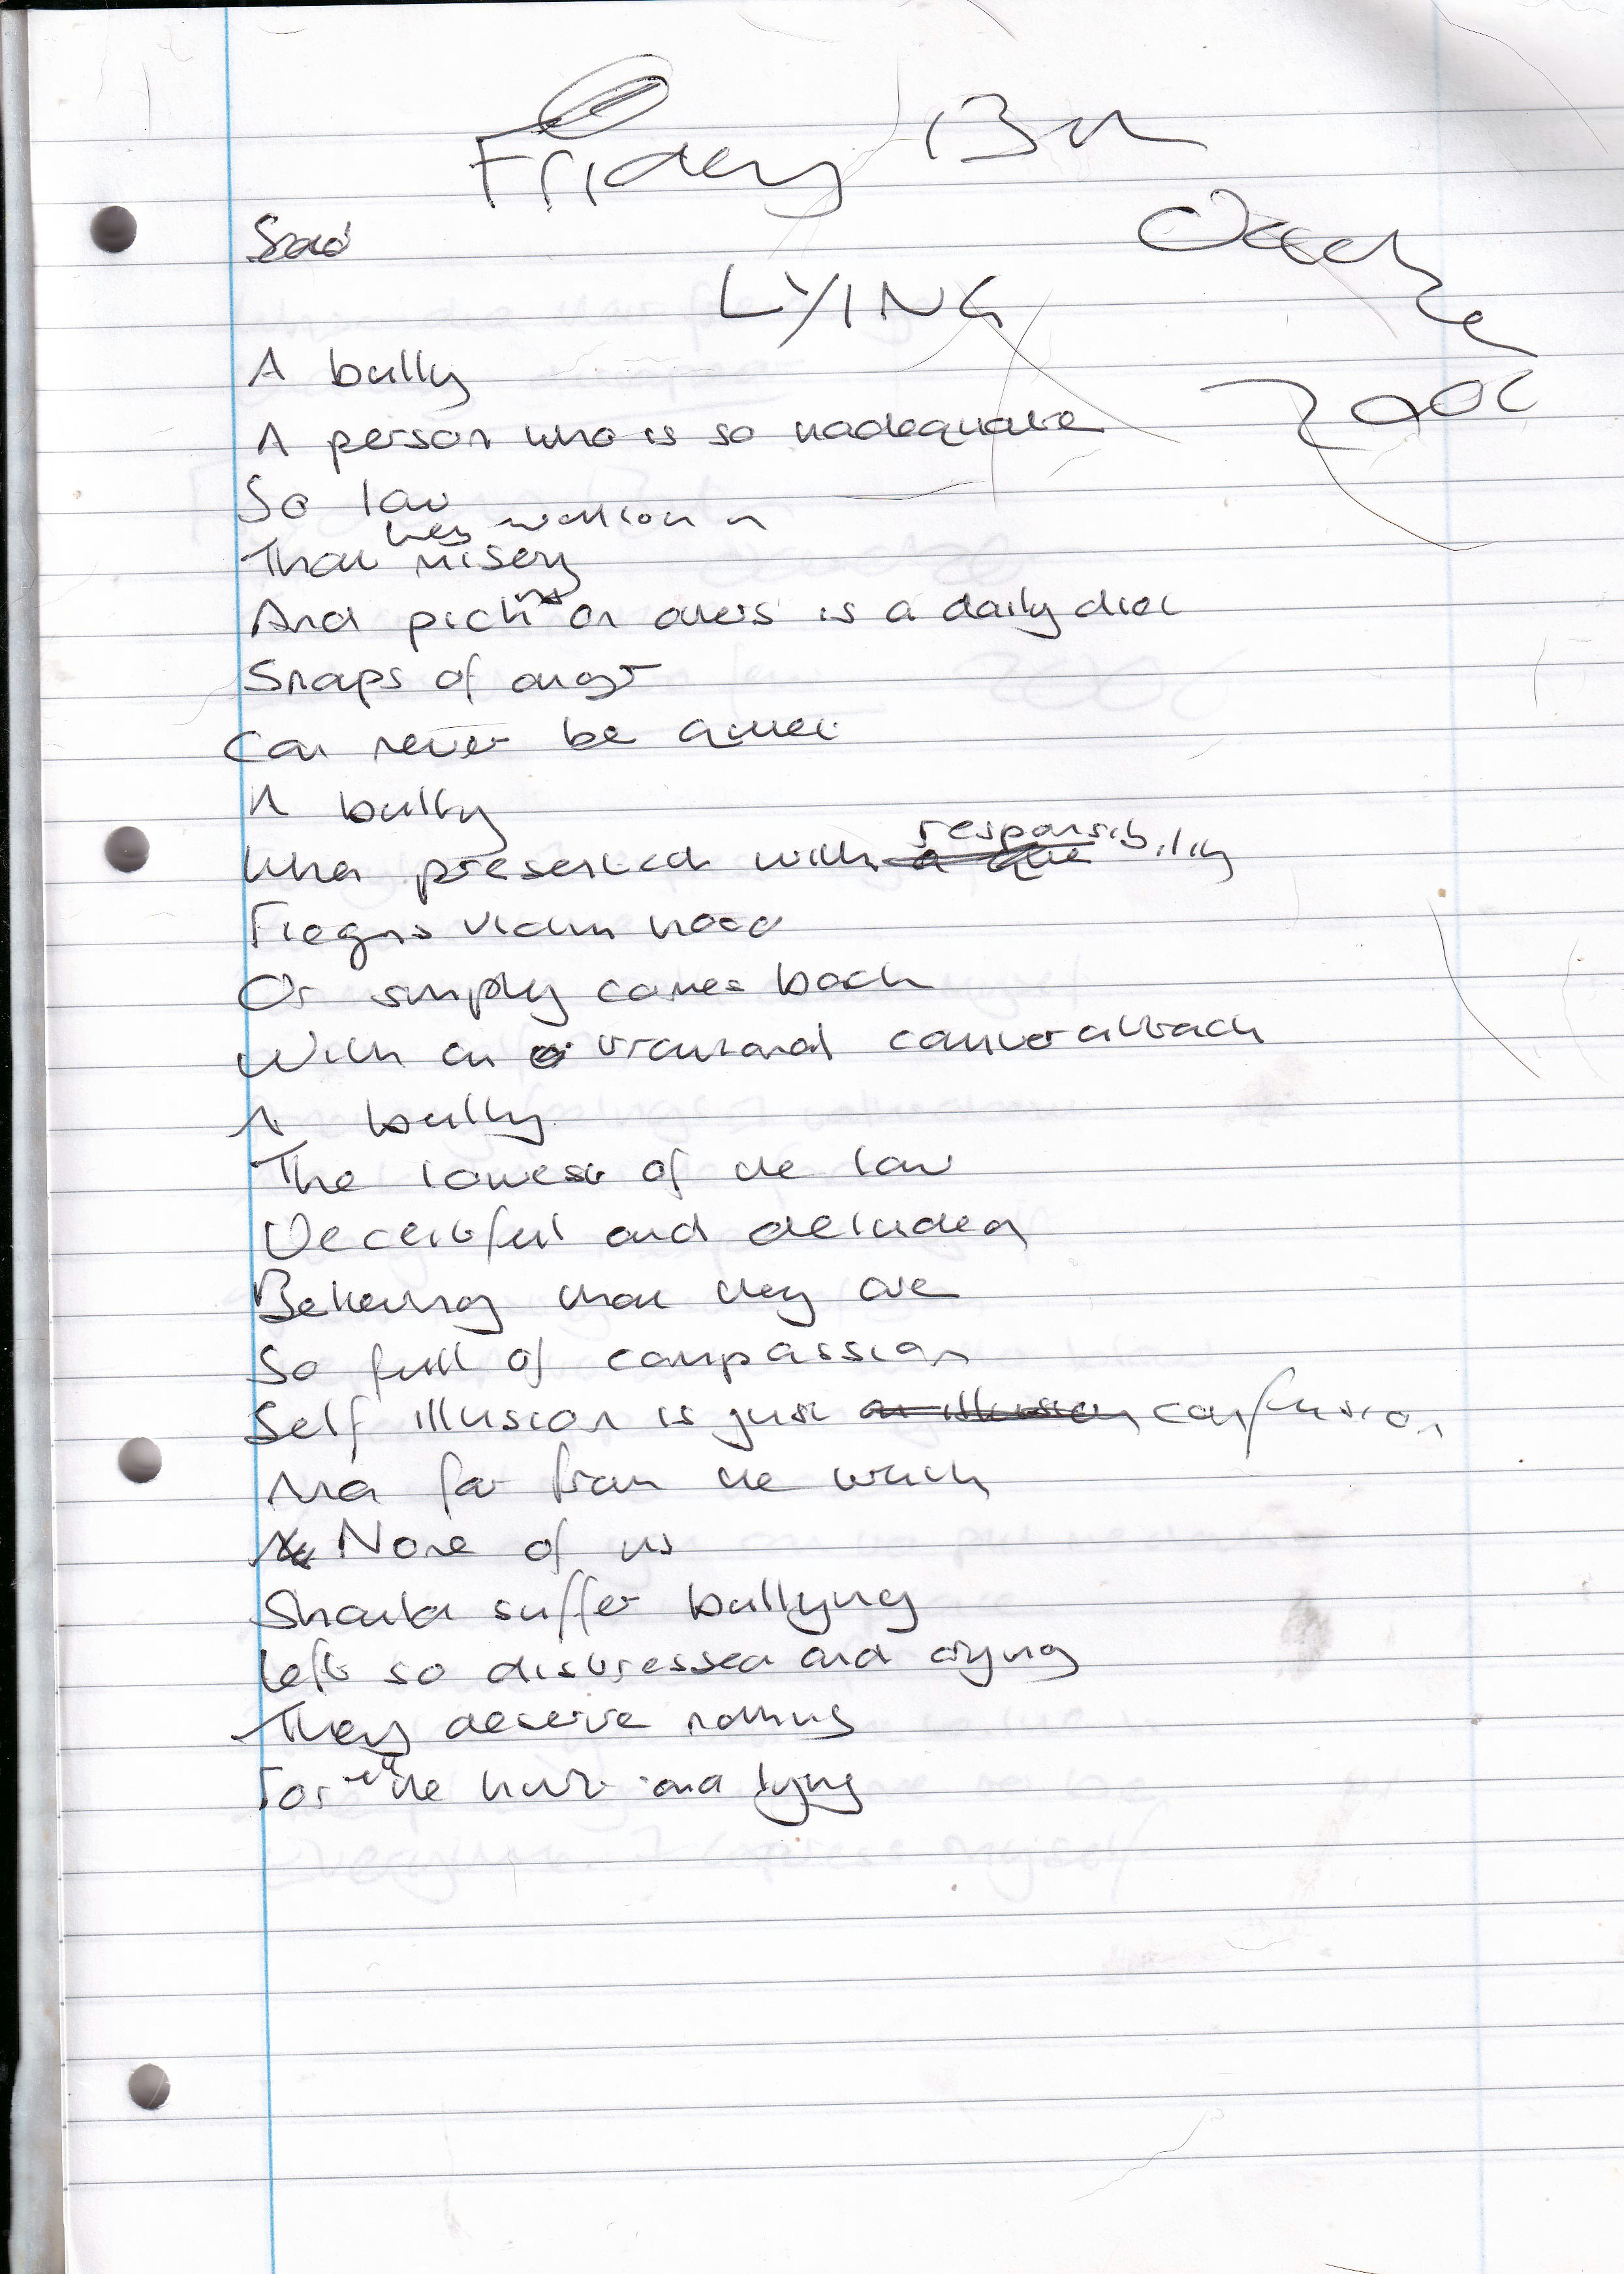 Friday 13th
October
2006
Sad
LYING
A bully
A person who is so inadequate
So low
they wallow in
That misery
And picking on others is a daily diet
Snaps of anger
Can never be quiet
A bully
When presented with responsibility
Fiegns victim hood
Or simply comes back
With an irrational counter attack
A bully
The lowest of the low
Deceitful and deluded
Believing that they are
So full of compassion
Self illusion is just an illusion confusion
And far from the truth
None of us
Should suffer bullying
Left so distressed and crying
They deserve nothing
For the hurt and lying